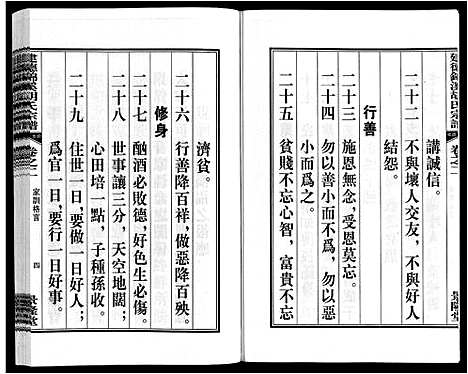 建德錦溪胡氏宗譜
卷之二
景隆堂
講誠信。
二十二　不與壞人交友，不與好人
結怨。
行善
二十三　施恩無念，受恩莫忘。
二十四　勿以善小而不爲，勿以惡
小而爲之。
二十五　貧賤不忘心智，富貴不忘
濟貧。
二十六　行善降百祥，做惡降百殃。
修身
二十七　酗酒必敗德，好色生必傷。
二十八　世事讓三分，天空地闊；
心田培一點，子種孫收。
二十九　住世一日，要做一日好人；
爲官一日，要行一日好事。
建德錦溪胡氏宗譜
卷之二
家訓格言
四
景隆堂